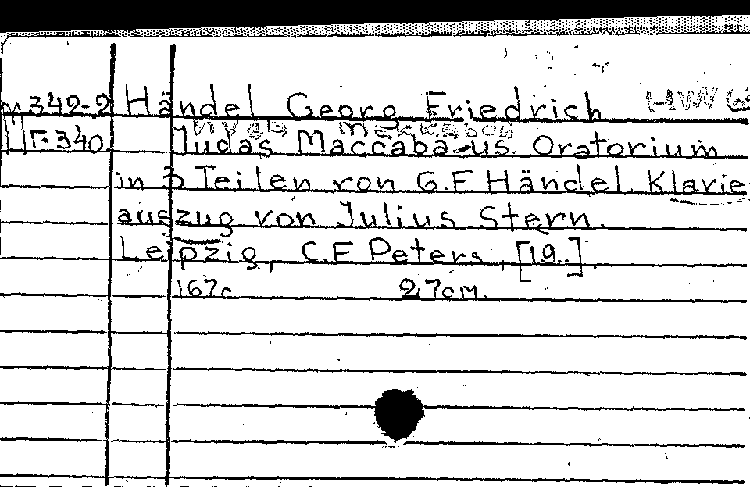 м342-2 Händel Georg Friedrich
Г-340 Judas Maccabaeus. Oratorium
in 3 Teilen von G.F Händel. Klavie
auszug von Julius Stern.
Leipzig, C.F Peters, [19..].
167c 27cm.